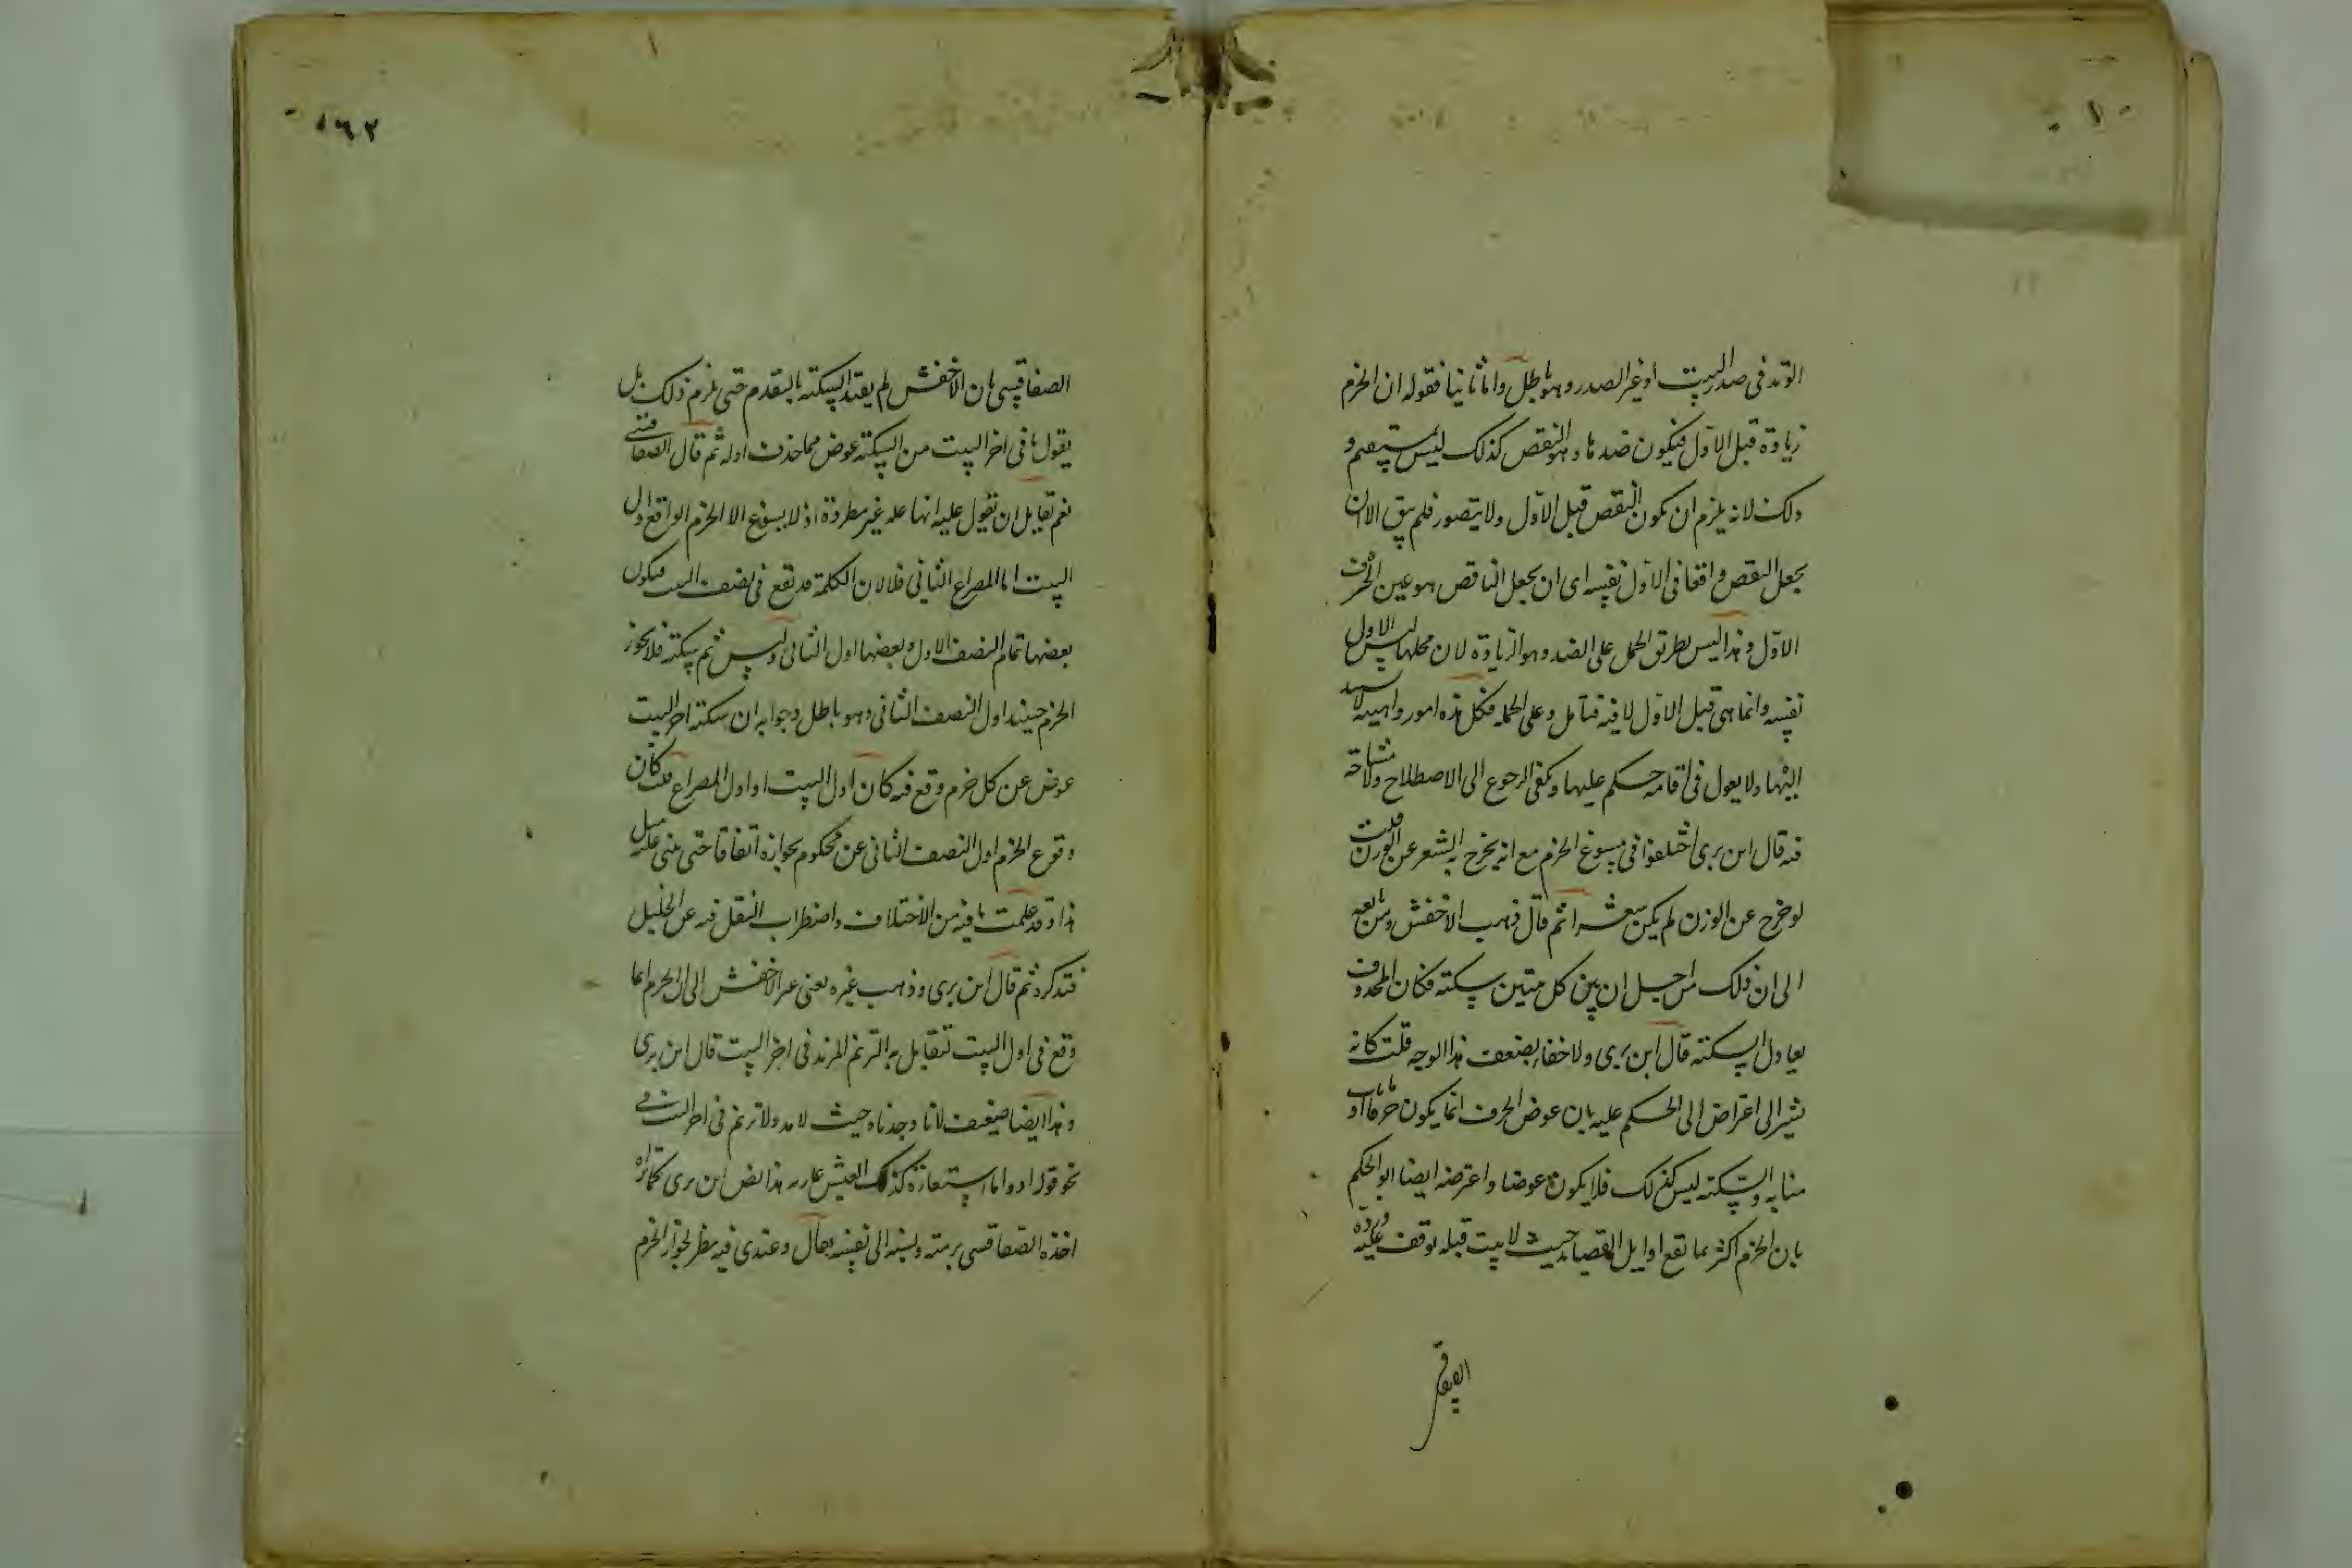 الوتد فى صدر البيت او غير الصدر وهو باطل واما ثانيا فقوله ان الخرم
زيادة قبل الاول فيكون ضدها وهو النقص كذلك ليس بمستقيم و
ذلك لانه يلزم ان يكون النقص قبل الاول ولا يتصور فلم يبق الا ان
يجعل النقص واقعا فى الاول نفسه اى ان يجعل الناقص هو عين الحرف
الاول وهذا ليس بطريق الحمل على الضد وهو الزيادة لان محلها ليس الاول
نفسه وانما هى قبل الاول لا فيه فتامل وعلى الجمله فكل هذه امور واهية لا
اليها ولا يعول فى اقامة حكم عليها ويكفى الرجوع الى الاصطلاح ولا مشاحة
فيه قال ابن برى اختلفوا فى مسوغ الخرم مع انه يخرج به الشعر عن الوزن قلت
لو خرج عن الوزن لم يكن شعرا ثم قال ذهب الاخفش ومن تابعه
الى ان ذلك من اجل ان بين كل بيتين سكتة فكان المحذوف
يعادل السكتة قال ابن برى ولا خفاء بضعف هذا الوجه قلت كانه
يشير الى اعتراض الحكم عليه بان عوض الحرف انما يكون حرفا او ما ناب
منابه والسكتة ليس كذلك فلا يكون عوضا واعترضه ايضا ابو الحكم
بان الخرم اكثر ما تقع اوايل القصايد حيث لا بيت قبله يوقف عليه ورده
الصفاقسى بان الاخفش لم يقيد السكتة بالتقدم حتى يلزم ذلك بل
يقول ما فى اخر البيت من السكتة عوض مما حذف اوله ثم قال الصفاقسى
نعم لقايل ان يقول عليه انها عله غير مطردة اذ لا يسوغ الا الخرم الواقع اول
البيت اما المصراع الثانى فلا لان الكلمة قد تقع فى نصف البيت فيكون
بعضها تمام النصف الاول وبعضها اول الثانى وليس ثم سكتة فلا يجوز
الخرم حينئذ اول النصف الثانى وهو باطل وجوابه ان سكتة اخر البيت
عوض عن كل خرم وقع فيه كان اول البيت او اول المصراع قلت كان
وقوع الخرم اول النصف الثانى عن محكوم بجوازه اتفاقا حتى يبنى عليه مثل
هذا وقد علمت ما فيه من الاختلاف واضطراب النقل فيه عن الخليل
فتذكره ثم قال ابن برى وذهب غيره يعنى غير الاخفش الى ان الخرم انما
وقع فى اول البيت لتقابل به الترنم المزيد فى اخر البيت قال ابن برى
وهذا ايضا ضعيف لانا وجدناه حيث لا مد ولا ترنم فى اخر البيت
نحو قوله ادوا ما استعاروه كذلك العيش عاريه هذا نص ابن برى كما تراه
اخذه الصفاقسى برمته ونسبه الى نفسه وقال وعندى فيه نظر لجواز الخرم